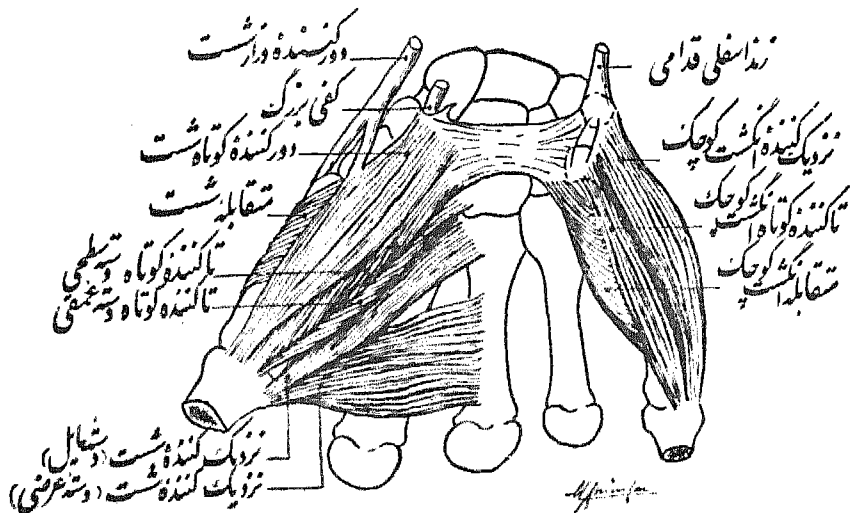 دور کنندهٔ دراز شست
کفی بزرگ
دور کنندهٔ کوتاه شست
متقابله شست
تا کنندهٔ کوتاه دسته سطحی
تا کنندهٔ کوتاه دسته عمقی
نزدیک کنندهٔ شست (دسته مایل)
نزدیک کنندهٔ شست (دسته عرضی)
زند اسفلی قدامی
نزدیک کنندهٔ انگشت کوچک
تا کنندهٔ کوتاه انگشت کوچک
متقابله انگشت کوچک